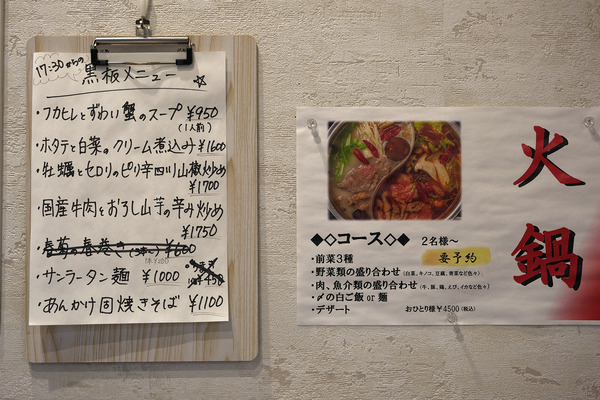 17:30からの
黒板メニュー ☆
・フカヒレとずわい蟹のスープ ¥950
(1人前)
・ホタテと白菜のクリーム煮込み ¥1600
・牡蠣とセロリのピリ辛四川山椒炒め
¥1700
・国産牛肉とおろし山芋の辛み炒め
¥1750
・春菊の春巻き ¥600
・サンラータン麺 ¥1000
¥450
・あんかけ固焼きそば ¥1100
火鍋
◆◇コース◇◆ 2名様～
要予約
・前菜3種
・野菜類の盛り合わせ (白菜、キノコ、豆腐、青菜など色々)
・肉、魚介類の盛り合わせ (牛、豚、鶏、えび、イカなど色々)
・〆の白ご飯 or 麺
・デザート
おひとり様¥4500 (税込)